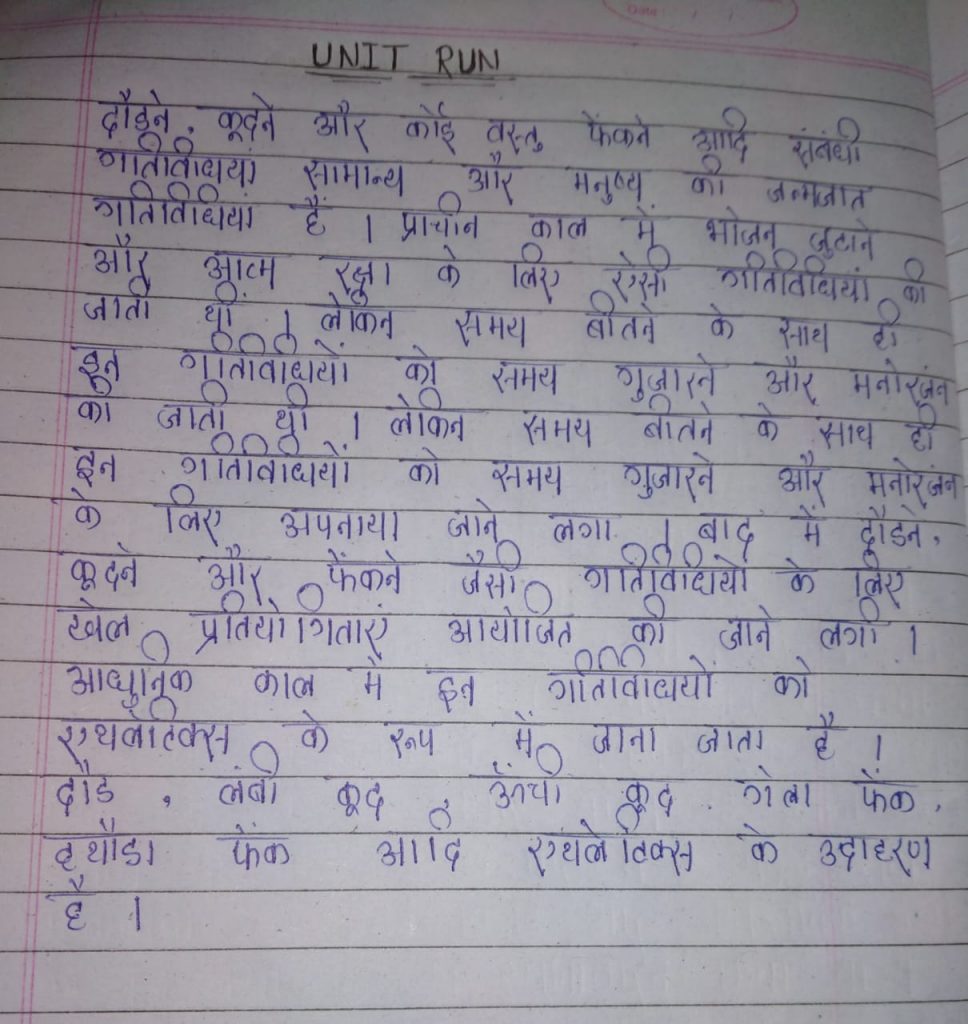 UNIT RUN
दौड़ने, कूदने और कोई वस्तु फेंकने आदि संबंधी
गतिविधियां सामान्य और मनुष्य की जन्मजात
गतिविधियां हैं । प्राचीन काल में भोजन जुटाने
और आत्म रक्षा के लिए ऐसी गतिविधियां की
जाती थीं । लेकिन समय बीतने के साथ ही
इन गतिविधियों को समय गुजारने और मनोरंजन
की जाती थी । लेकिन समय बीतने के साथ ही
इन गतिविधियों को समय गुजारने और मनोरंजन
के लिए अपनाया जाने लगा । बाद में दौड़ने,
कूदने और फेंकने जैसी गतिविधियों के लिए
खेल प्रतियोगिताएं आयोजित की जाने लगी ।
आधुनिक काल में इन गतिविधियों को
एथलेटिक्स के रूप में जाना जाता है ।
दौड़, लंबी कूद, ऊँची कूद, गोला फेंक,
हथौड़ा फेंक आदि एथलेटिक्स के उदाहरण
है ।